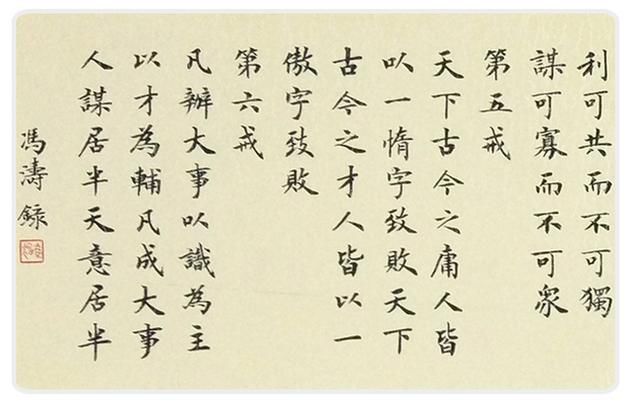 利可共而不可獨
謀可寡而不可眾
第五戒
天下古今之庸人皆
以一惰字致敗天下
古今之才人皆以一
傲字致敗
第六戒
凡辦大事以識為主
以才為輔凡成大事
人謀居半天意居半
馮濤錄